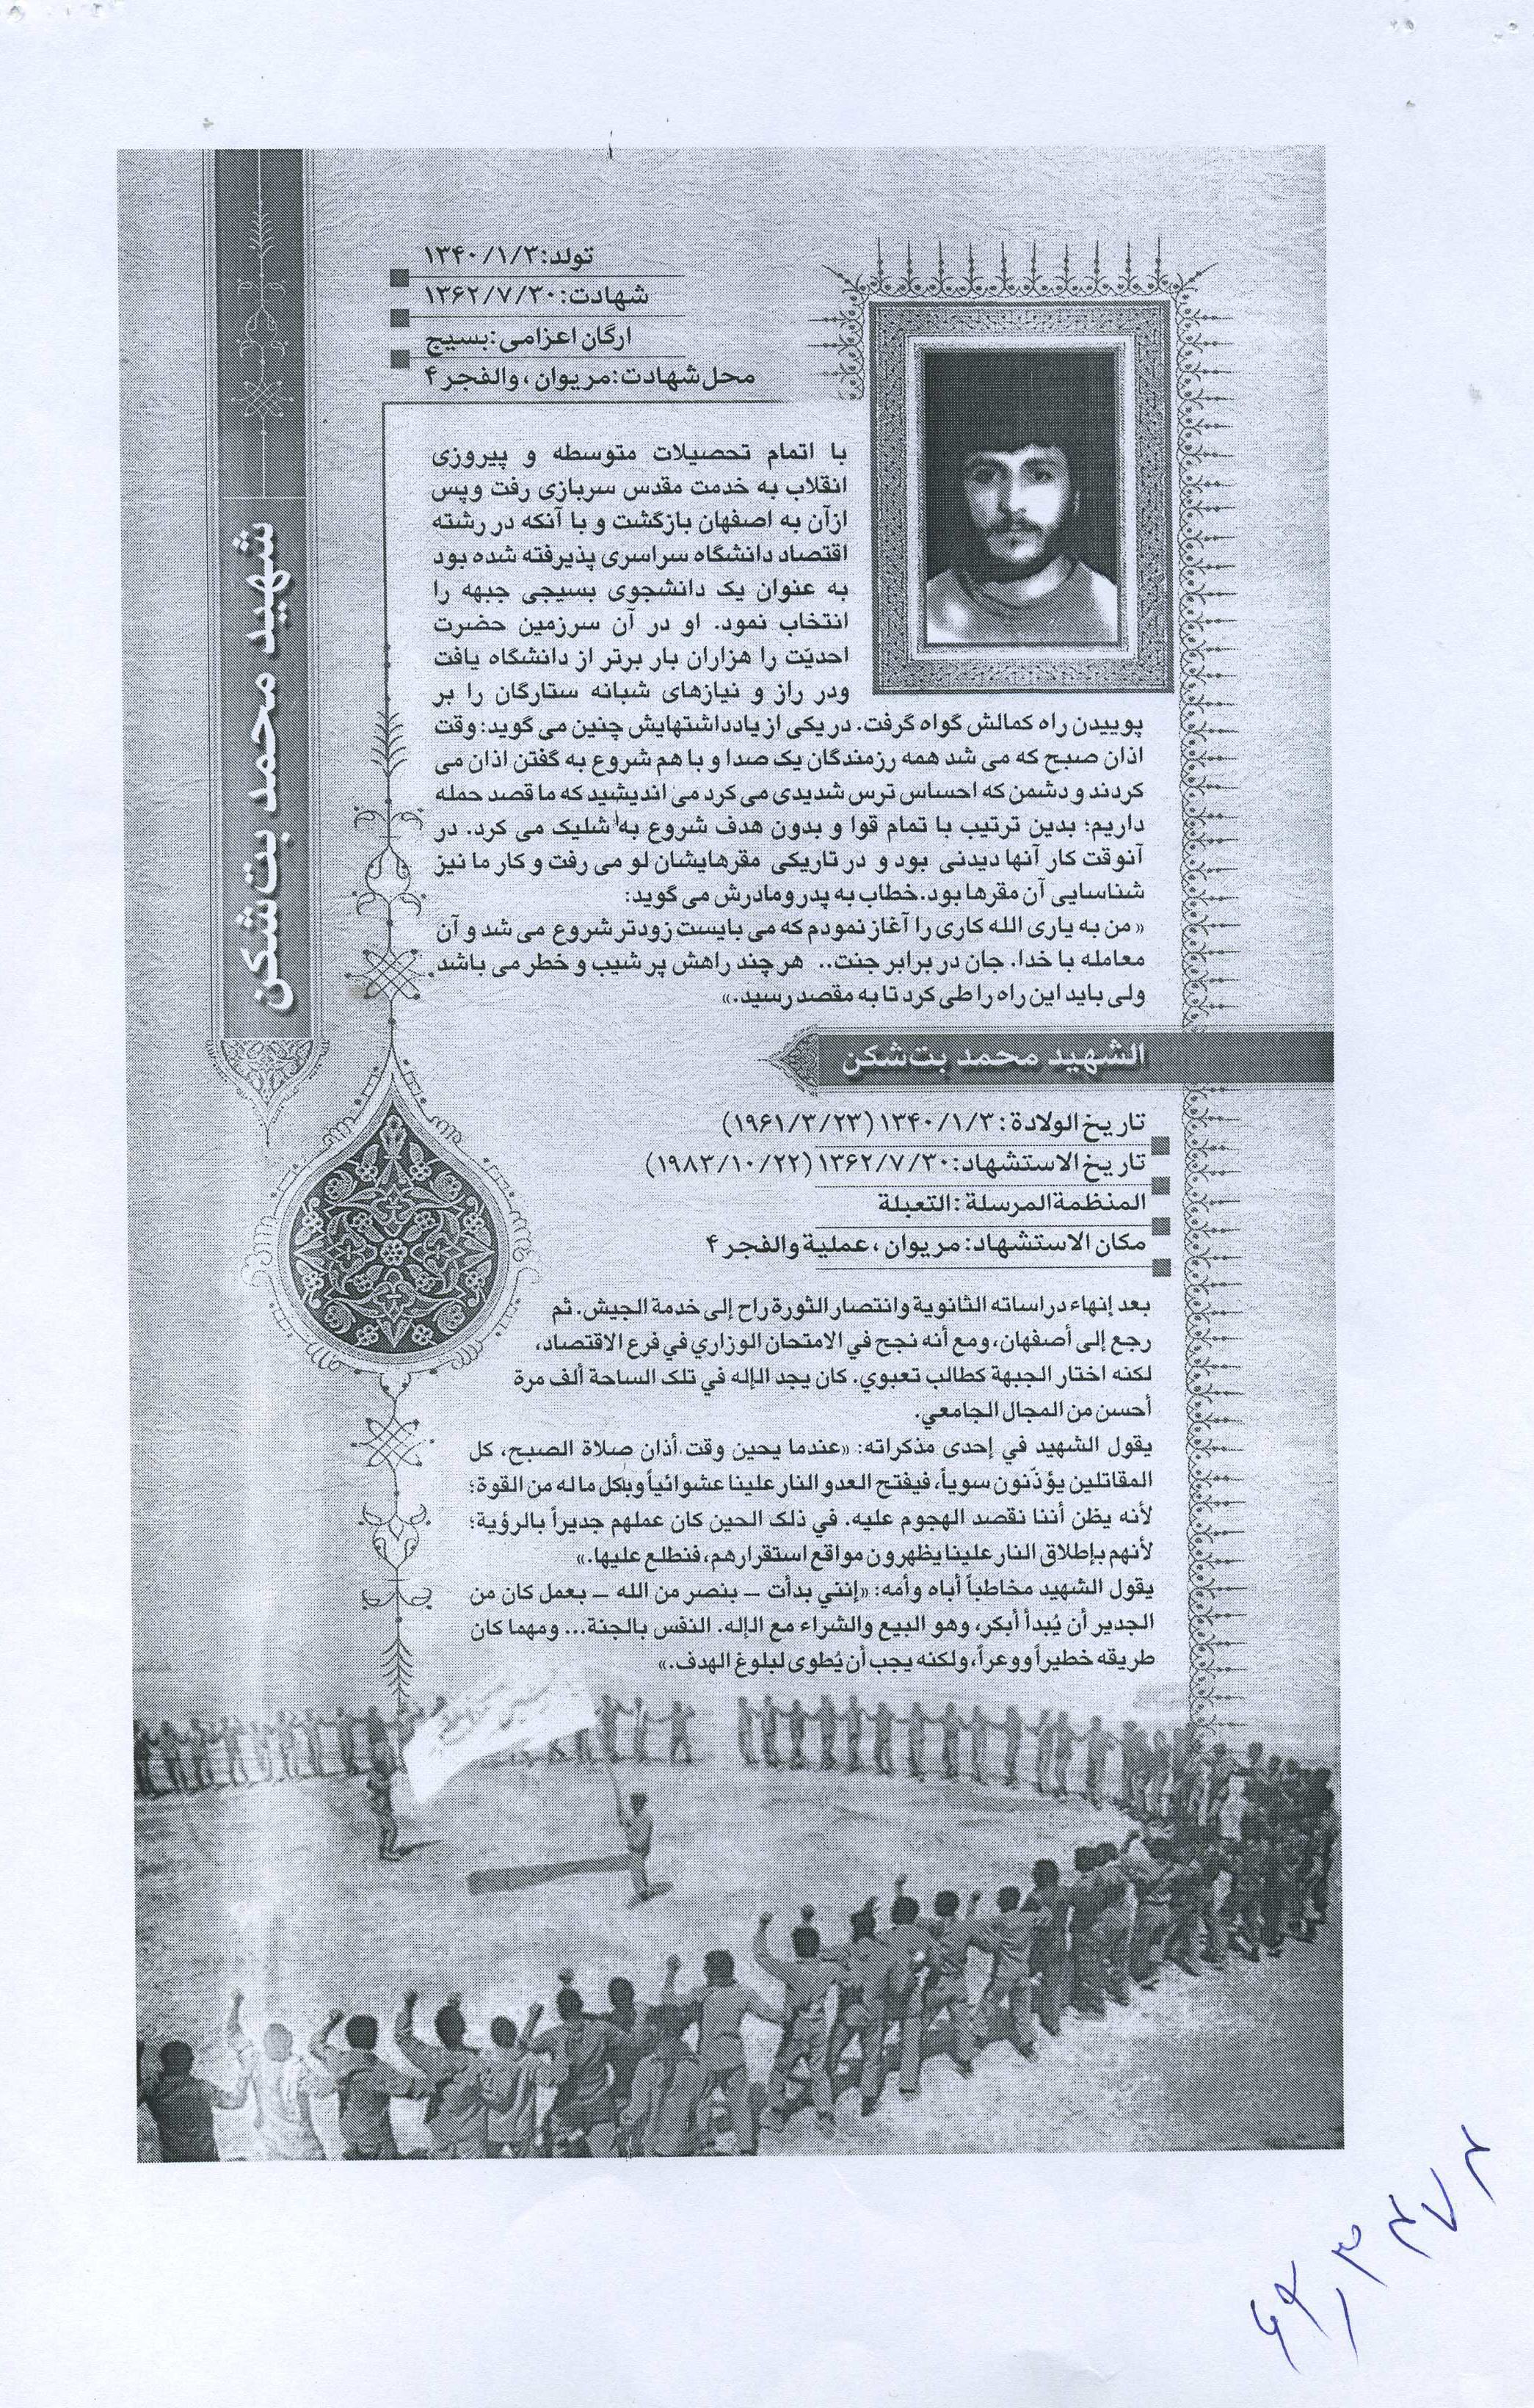 شهید محمد بت‌شکن
تولد: ۱۳۴۰/۱/۳
شهادت: ۱۳۶۲/۷/۳۰
ارگان اعزامی: بسیج
محل شهادت: مریوان، والفجر ۴
با اتمام تحصیلات متوسطه و پیروزی
انقلاب به خدمت مقدس سربازی رفت وپس
ازآن به اصفهان بازگشت و با آنکه در رشته
اقتصاد دانشگاه سراسری پذیرفته شده بود
به عنوان یک دانشجوی بسیجی جبهه را
انتخاب نمود. او در آن سرزمین حضرت
احدیّت را هزاران بار برتر از دانشگاه یافت
ودر راز و نیازهای شبانه ستارگان را بر
پوییدن راه کمالش گواه گرفت. در یکی از یادداشتهایش چنین می گوید: وقت
اذان صبح که می شد همه رزمندگان یک صدا و با هم شروع به گفتن اذان می
کردند و دشمن که احساس ترس شدیدی می کرد می اندیشید که ما قصد حمله
داریم؛ بدین ترتیب با تمام قوا و بدون هدف شروع به شلیک می کرد. در
آنوقت کار آنها دیدنی بود و در تاریکی مقرهایشان لو می رفت و کار ما نیز
شناسایی آن مقرها بود. خطاب به پدر ومادرش می گوید:
« من به یاری الله کاری را آغاز نمودم که می بایست زودتر شروع می شد و آن
معامله با خدا. جان در برابر جنت.. هر چند راهش پر شیب و خطر می باشد.
ولی باید این راه را طی کرد تا به مقصد رسید.»
الشهید محمد بت‌شکن
تاریخ الولادة: ۱۳۴۰/۱/۳ (۱۹۶۱/۳/۲۳)
تاریخ الاستشهاد: ۱۳۶۲/۷/۳۰ (۱۹۸۳/۱۰/۲۲)
المنظمة المرسلة: التعبلة
مکان الاستشهاد: مریوان، عملیة والفجر ۴
بعد إنهاء دراساته الثانویة وانتصار الثورة راح إلی خدمة الجیش. ثم
رجع إلی أصفهان، ومع أنه نجح في الامتحان الوزاري في فرع الاقتصاد،
لکنه اختار الجبهة کطالب تعبوي. کان یجد الإله في تلک الساحة ألف مرة
أحسن من المجال الجامعي.
یقول الشهید في إحدی مذکراته: «عندما یحین وقت أذان صلاة الصبح، کل
المقاتلین یؤذّنون سویاً، فیفتح العدو النار علینا عشوائیاً وبکل ما له من القوة؛
لأنه یظن أننا نقصد الهجوم علیه. في ذلک الحین کان عملهم جدیراً بالرؤیة؛
لأنهم بإطلاق النار علینا یظهرون مواقع استقرارهم، فنطلع علیها.»
یقول الشهید مخاطباً أباه وأمه: «إنني بدأت – بنصر من الله – بعمل کان من
الجدیر أن یُبدأ أبکر، وهو البیع والشراء مع الإله. النفس بالجنة... ومهما کان
طریقه خطیراً ووعراً، ولکنه یجب أن یُطوی لبلوغ الهدف.»